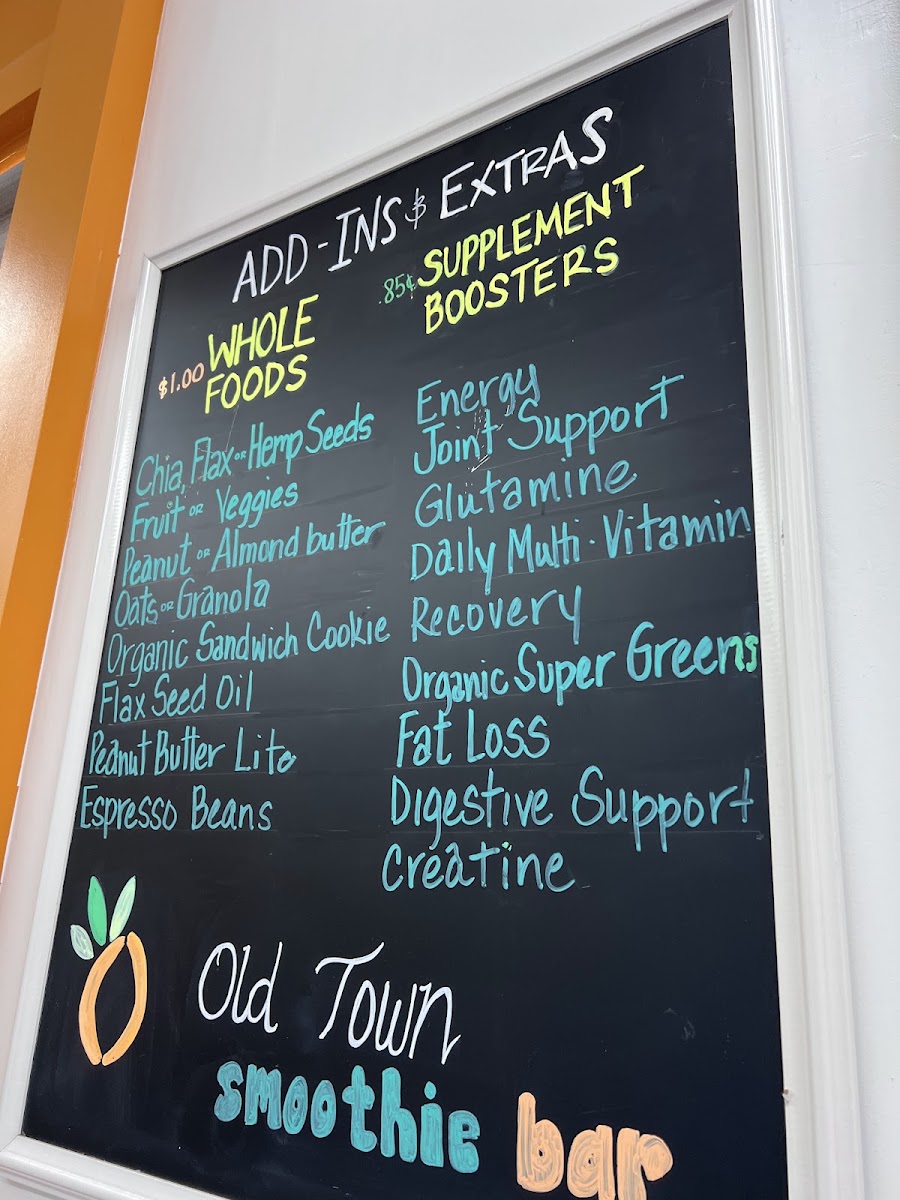 ADD-INS & EXTRAS
$1.00 WHOLE
FOODS
Chia, Flax or Hemp Seeds
Fruit or Veggies
Peanut or Almond butter
Oats or Granola
Organic Sandwich Cookie
Flax Seed Oil
Peanut Butter Lite
Espresso Beans
.85¢ SUPPLEMENT
BOOSTERS
Energy
Joint Support
Glutamine
Daily Multi-Vitamin
Recovery
Organic Super Greens
Fat Loss
Digestive Support
Creatine
Old Town
smoothie bar